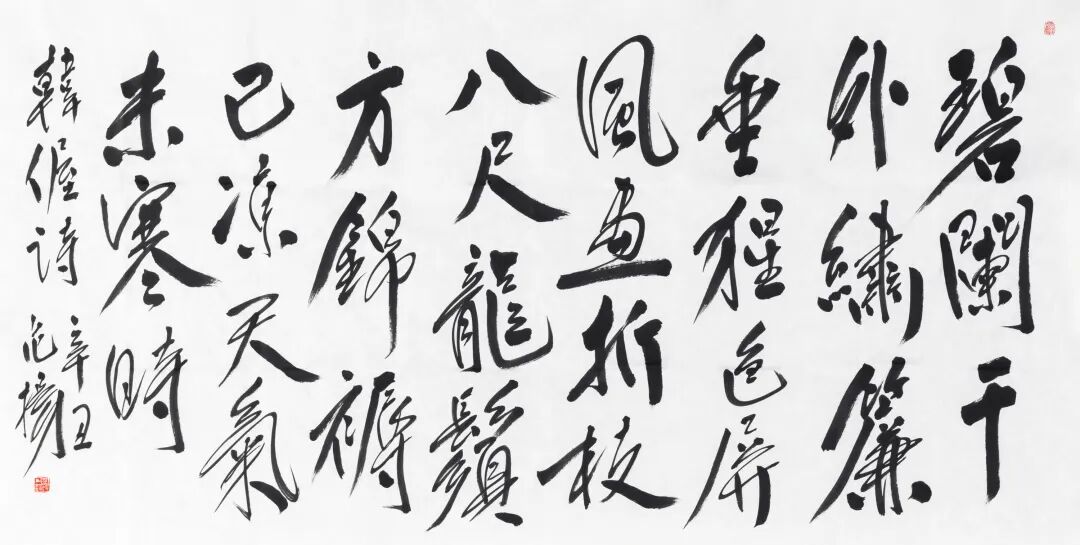 碧闌干
外繡簾
垂猩色屏
風畫折枝
八尺龍鬚
方錦褥
已凉天氣
未寒時
韓偓詩
辛丑
范揚